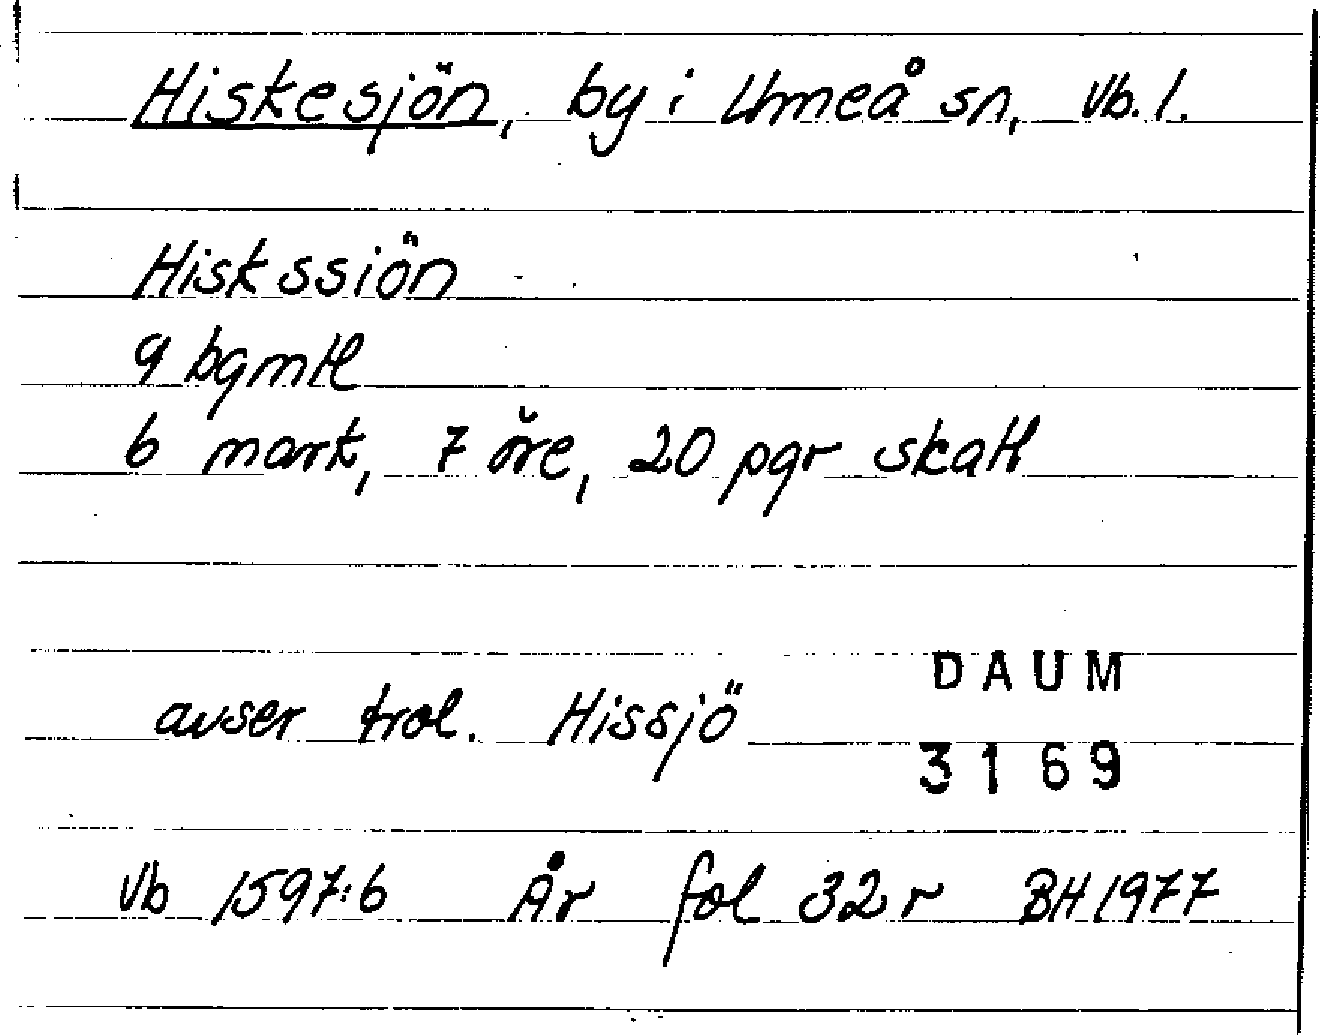 Hiskesjön, by i Umeå sn, Vb. l.
Hiskssiön
9 bgmtl
6 mark, 7 öre, 20 pgr skatt
DAUM
avser trol. Hissjö
3169
Vb 1597:6 År fol 32 r BH 1977